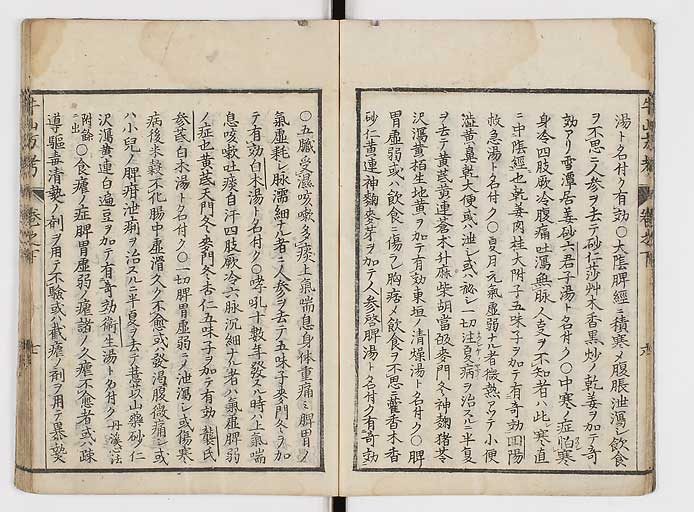 湯ト名付ク有効〇大陰脾經ニ積寒メ腹脹泄瀉シ飲食
ヲ不思ニ人参ヲ去テ砂仁莎艸木香黒炒ノ乾姜ヲ加テ奇
効アリ雪潭居姜砂六君子湯ト名付ク〇中寒ノ症怕寒
身冷四肢厥冷腹痛吐瀉無脉人叓ヲ不知者ハ此寒直
ニ中陰經也乾姜肉桂大附子五味子ヲ加テ有奇効回陽
救急湯ト名付ク〇夏月元氣虚弱ナル者微熱アツテ小便
黄大便或ハ泄シ或ハ秘シ一切注夏病ヲ治スルニ半夏
ヲ去テ黄芪黄連蒼木升麻柴胡當皈麥門冬神麯猪苓
沢瀉黄栢生地黄ヲ加テ有効東垣ノ清燥湯ト名付ク〇脾
胃虚弱或ハ飲食ニ傷ラレ胸痞メ飲食ヲ不思ニ藿香木香
砂仁黄連神麯麥芽ヲ加テ人参啓脾湯ト名付ク有奇効
〇五臓受濕咳嗽多痰上氣喘息身体重痛ニ脾胃ノ
氣虚耗シ脉濡細ナル者ニ人参ヲ去テ五味子麥門冬ヲ加
テ有効白木湯ト名付ク〇哮吼十數年發スル時ハ上氣喘
息咳嗽吐痰自汗四肢厥冷六脉沉細ナル者ハ氣虚脾弱
ノ症也黄芪天門冬麥門冬杏仁五味子ヲ加テ有効龔氏
参芪白木湯ト名付ク〇一切脾胃虚弱ニノ泄瀉シ或傷寒
病後米穀不化腸中虚滑久ノ不愈或ハ發渇腹微痛シ或
ハ小兒ノ脾疳泄痢ヲ治スルニ半夏ヲ去テ甚蓉山藥砂仁
沢瀉黄連白扁豆ヲ加テ有奇効衛生湯ト名付ク丹溪心法
附餘ニ出〇食瘧ノ症脾胃虚弱ノ瘧諸ノ久瘧不愈者或ハ疎
導駈毒清熱ノ剤ヲ用テ不驗或ハ截瘧ノ剤ヲ用テ暴熱
牛山方考
巻之下
七